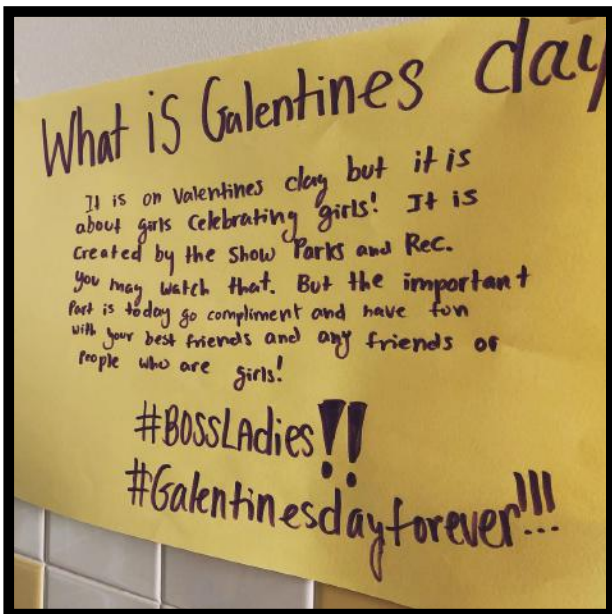 What is Galentines day
It is on Valentines day but it is
about girls celebrating girls! It is
created by the show Parks and Rec.
You may watch that. But the important
Part is today go compliment and have fun
with your best friends and any friends or
People who are girls!
#BOSSLAdies!!
#Galentinesdayforever!!!